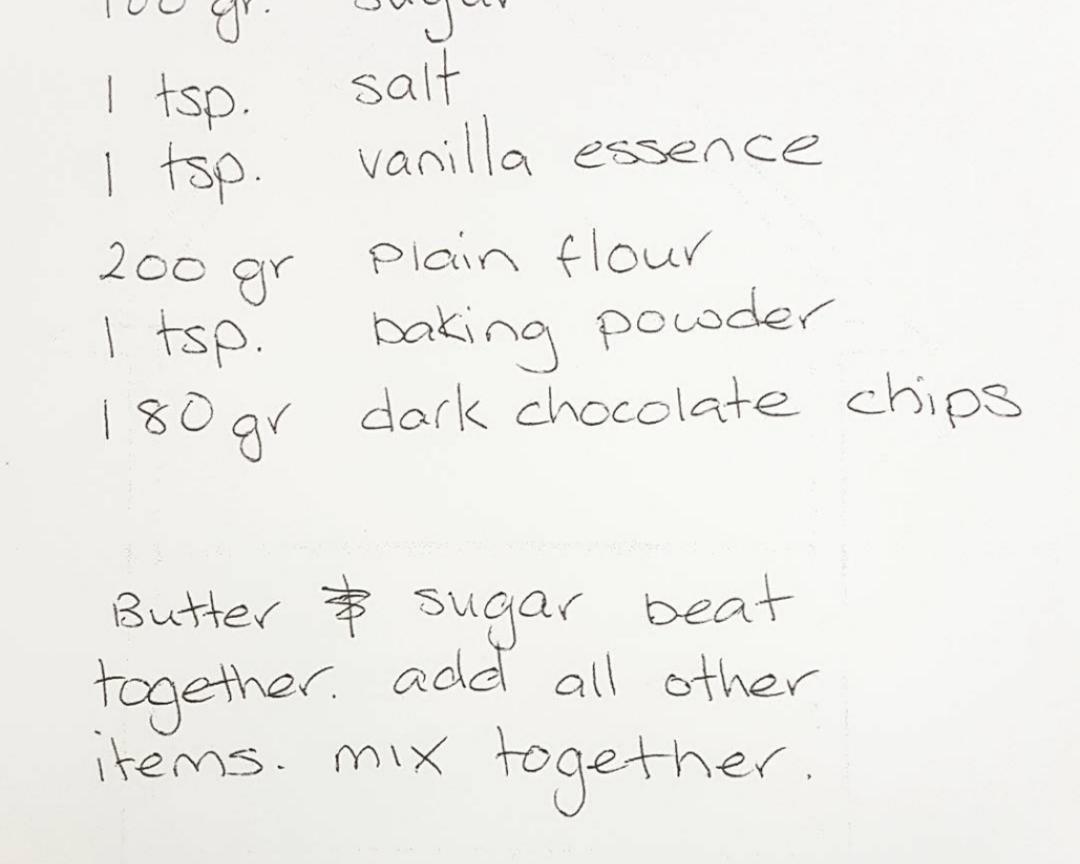 100 gr. sugar
1 tsp. salt
1 tsp. vanilla essence
200 gr plain flour
1 tsp. baking powder
180 gr dark chocolate chips
Butter & sugar beat
together. add all other
items. mix together.